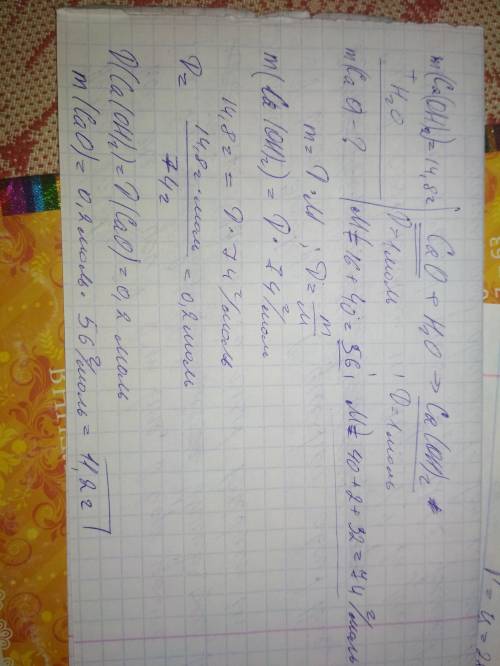 m(Ca(OH)₂)=14,8г | CaO + H₂O → Ca(OH)₂
+ H₂O | ν=1моль ν=1моль
m(CaO)-? | M=16+40=56; M=40+2+32=74 г/моль
m=ν·M; ν=m/M
m(Ca(OH)₂)=ν·74 г/моль
14,8г = ν·74 г/моль
ν= 14,8г·моль/74г = 0,2моль
ν(Ca(OH)₂)=ν(CaO)=0,2 моль
m(CaO)=0,2моль·56 г/моль=11,2г